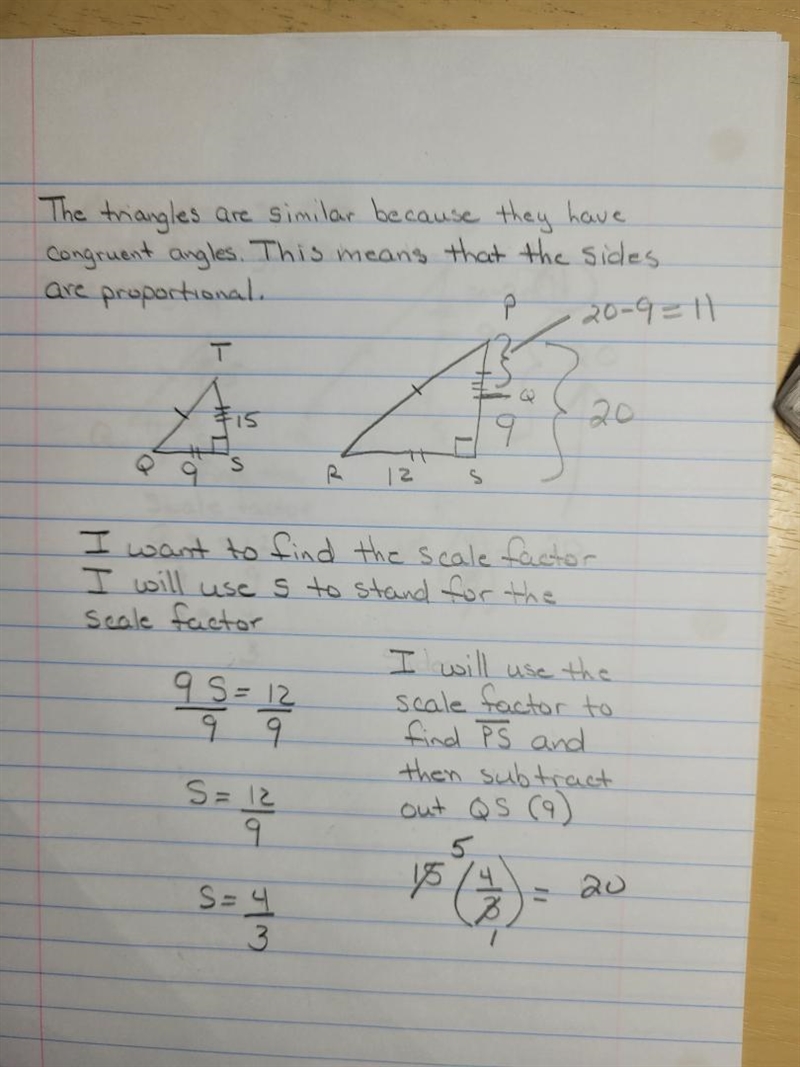 The triangles are similar because they have
congruent angles. This means that the sides
are proportional.
P
20-9=11
T
15
Q
9
S
Q
9
20
R
12
S
I want to find the scale factor
I will use s to stand for the
scale factor
9 S = 12
9 9
S = 12
9
S = 4
3
I will use the
scale factor to
find PS and
then subtract
out QS (9)
5
15 (4/3) = 20
1